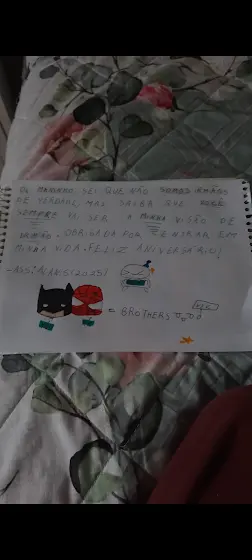 OI MANINHO, SEI QUE NÃO SOMOS IRMÃOS
DE VERDADE, MAS SAIBA QUE VOCÊ
SEMPRE VAI SER A MINHA VISÃO DE
IRMÃO. OBRIGADA POR ENTRAR EM
MINHA VIDA. FELIZ ANIVERSÁRIO!
= BROTHERS